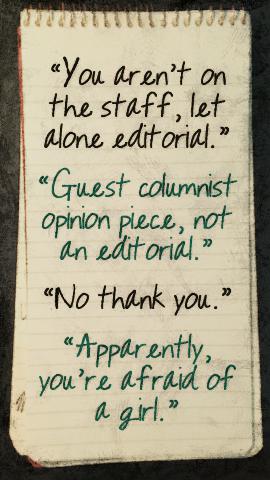 “You aren’t on
the staff, let
alone editorial.”
“Guest columnist
opinion piece, not
an editorial.”
“No thank you.”
“Apparently,
you’re afraid of
a girl.”